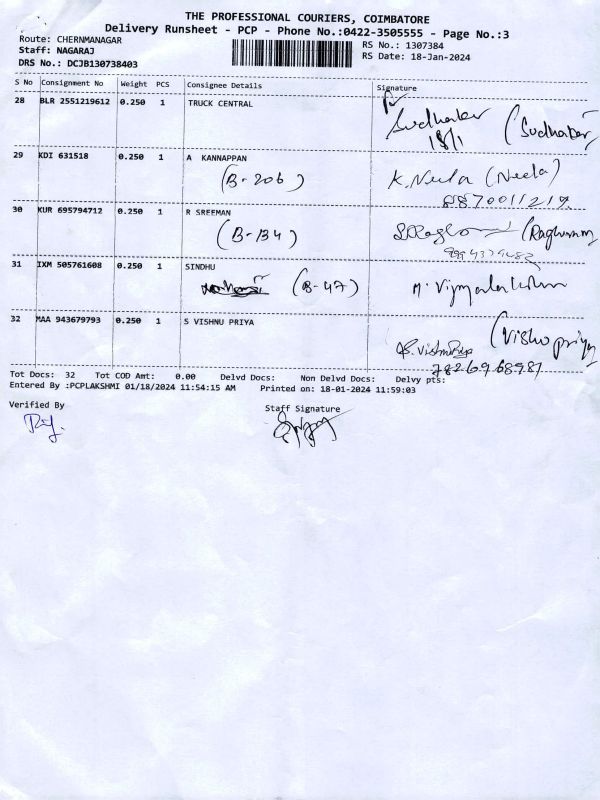 THE PROFESSIONAL COURIERS, COIMBATORE
Delivery Runsheet - PCP - Phone No.:0422-3505555 - Page No.:3
Route: CHERNMANAGAR
RS No.: 1307384
Staff: NAGARAJ
RS Date: 18-Jan-2024
DRS No.: DCJB130738403
S No Consignment No Weight PCS Consignee Details Signature
28 BLR 2551219612 0.250 1 TRUCK CENTRAL
Sudhakar (Sudhakar)
18/1
29 KDI 631518 0.250 1 A KANNAPPAN
(B-206) K. Neela (Neela)
8870011219
30 KUR 695794712 0.250 1 R SREEMAN
(B-134) (Raghuram)
31 IXM 505761608 0.250 1 SINDHU
(B-47)
32 MAA 943679793 0.250 1 S VISHNU PRIYA
(Vishnu priya)
S. VishnuPriya
7826968987
Tot Docs: 32 Tot COD Amt: 0.00 Delvd Docs: Non Delvd Docs: Delvy pts:
Entered By :PCPLAKSHMI 01/18/2024 11:54:15 AM Printed on: 18-01-2024 11:59:03
Verified By Staff Signature